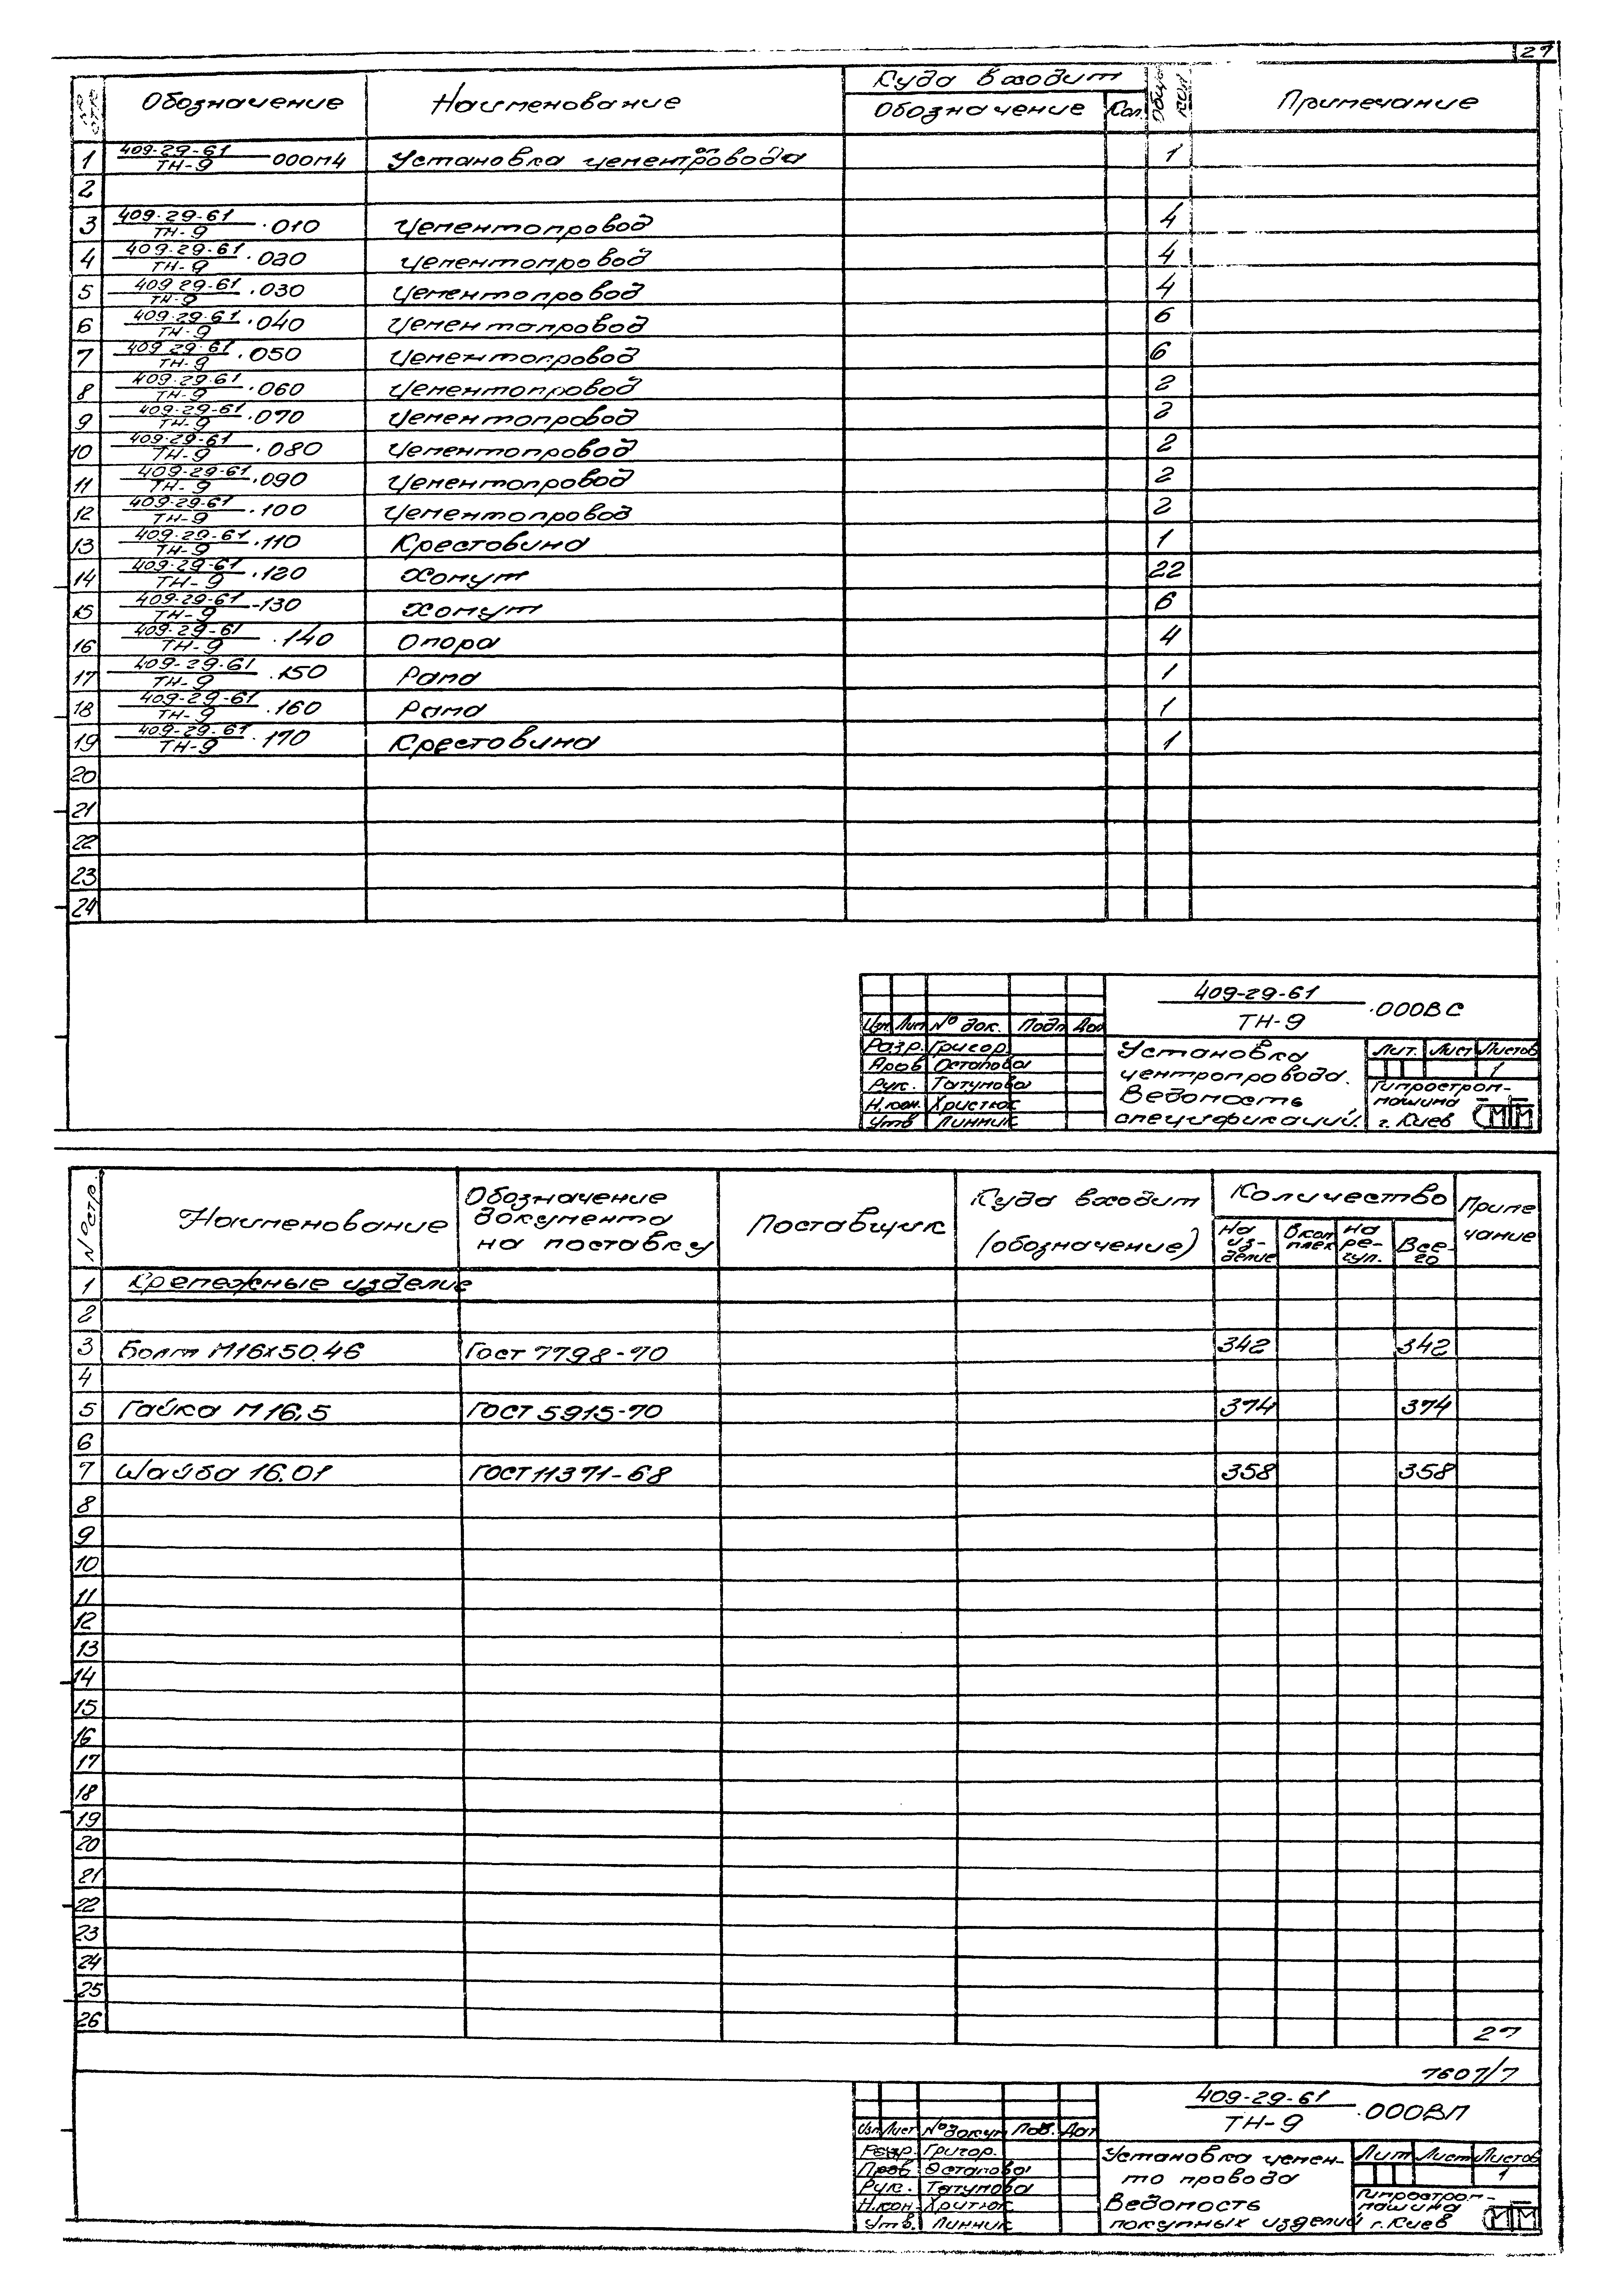 27
№ стр.
Обозначение
Наименование
Куда входит
Обозначение
Кол.
Общ. кол
Примечание
1 409-29-61/ТН-9 000М4 Установка цементопровода 1
2
3 409-29-61/ТН-9 .010 Цементопровод 4
4 409-29-61/ТН-9 .020 Цементопровод 4
5 409-29-61/ТН-9 .030 Цементопровод 4
6 409-29-61/ТН-9 .040 Цементопровод 6
7 409-29-61/ТН-9 .050 Цементопровод 6
8 409-29-61/ТН-9 .060 Цементопровод 2
9 409-29-61/ТН-9 .070 Цементопровод 2
10 409-29-61/ТН-9 .080 Цементопровод 2
11 409-29-61/ТН-9 .090 Цементопровод 2
12 409-29-61/ТН-9 .100 Цементопровод 2
13 409-29-61/ТН-9 .110 Крестовина 1
14 409-29-61/ТН-9 .120 Хомут 22
15 409-29-61/ТН-9 -130 Хомут 6
16 409-29-61/ТН-9 .140 Опора 4
17 409-29-61/ТН-9 .150 Рама 1
18 409-29-61/ТН-9 .160 Рама 1
19 409-29-61/ТН-9 .170 Крестовина 1
20
21
22
23
24
409-29-61/ТН-9 .000ВС
Изм. Лист № док. Подп Дат
Разр. Григор.
Пров Остапова
Рук. Татунова
Н.кон. Христюк
Утв Линник
Установка
центропровода.
Ведомость
спецификаций.
Лит. Лист Листов
1
Гипростром-
машина
г. Киев
№ стр.
Наименование
Обозначение
документа
на поставку
Поставщик
Куда входит
(обозначение)
Количество
На из-делие
В комплек
На ре-гул.
Все-го
Приме
чание
1 Крепежные изделие
2
3 Болт М16х50.46 Гост 7798-70 342 342
4
5 Гайка М16.5 ГОСТ 5915-70 374 374
6
7 Шайба 16.01 ГОСТ 11371-68 358 358
8
9
10
11
12
13
14
15
16
17
18
19
20
21
22
23
24
25
26
27
7607/7
409-29-61/ТН-9 .000ВП
Изм Лист № докум Под. Дат
Разр. Григор.
Пров Остапова
Рук. Татунова
Н.кон. Хритюк
Утв. Линник
Установка цемен-
то провода
Ведомость
покупных изделий
Лит Лист Листов
1
Гипростром-
машина
г. Киев